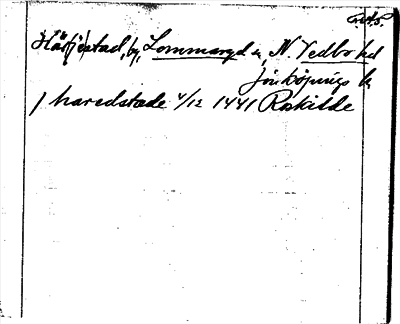 Härjestad, by, Lommaryd sn, N. Vedbo hd
Jönköpings l.
J haredstade 4/12 1441 Roskilde